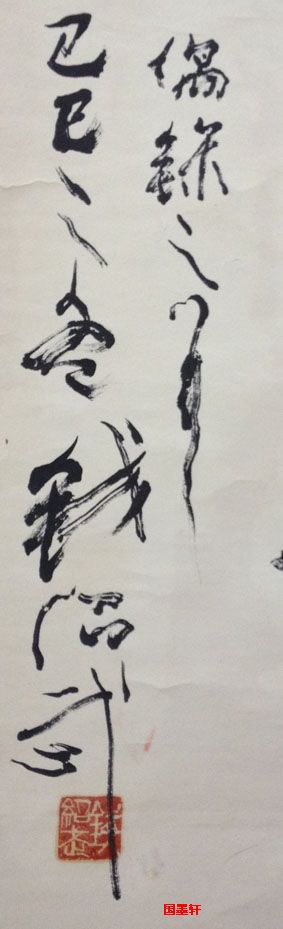 偶錄之
己巳之春錢紹武
錢紹武
国墨轩